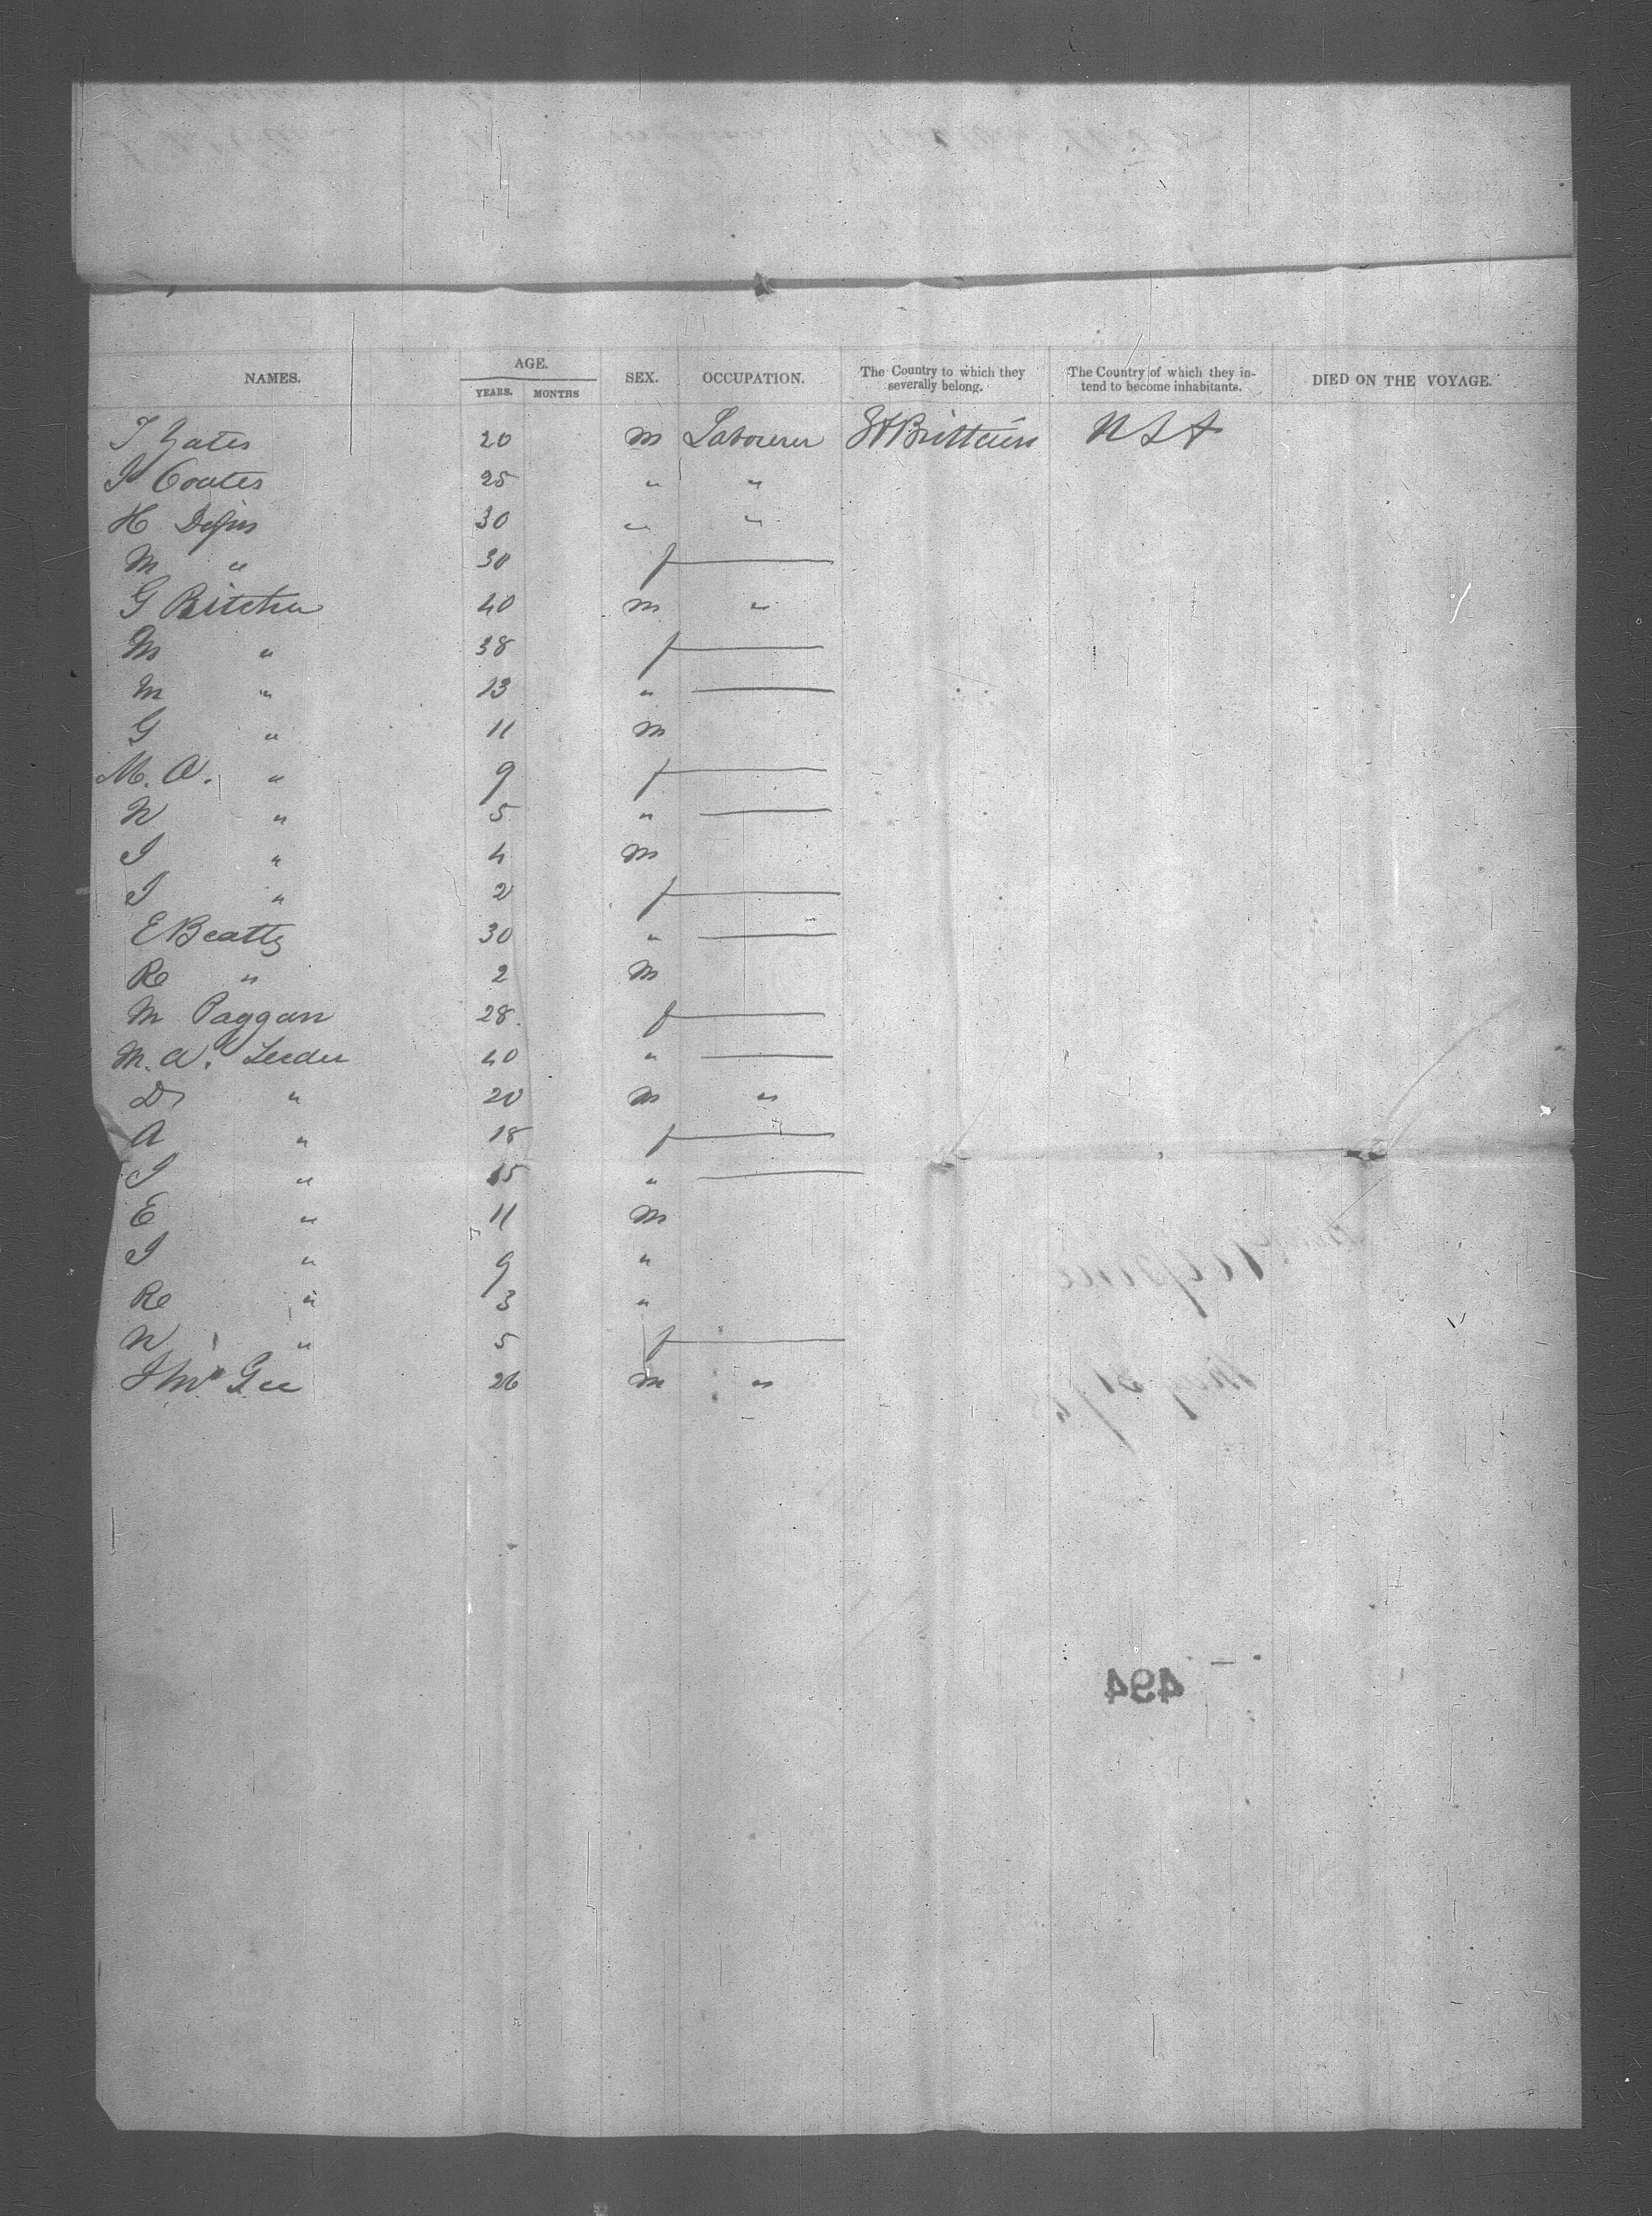 NAMES. AGE. SEX. OCCUPATION. The Country to which they severally belong. The Country of which they intend to become inhabitants. DIED ON THE VOYAGE.
YEARS. MONTHS
T Yates 20 M Labourer Gt Brittain USA
J Coates 25 " "
H 30 " "
M " 30 f
G Ritchie 40 M "
M " 38 f
M " 13 "
G " 11 M
M. A. " 9 f
N " 5 "
J " 4 M
J " 2 f
E Beatty 30 "
Ro " 2 M
M Paggan 28 f
M. A. Leeder 40 "
D " 20 M "
A " 18 f
J " 15 "
E " 11 M
J " 9 "
Ro " 3 "
N " 5 f
J McGee 26 M "
494